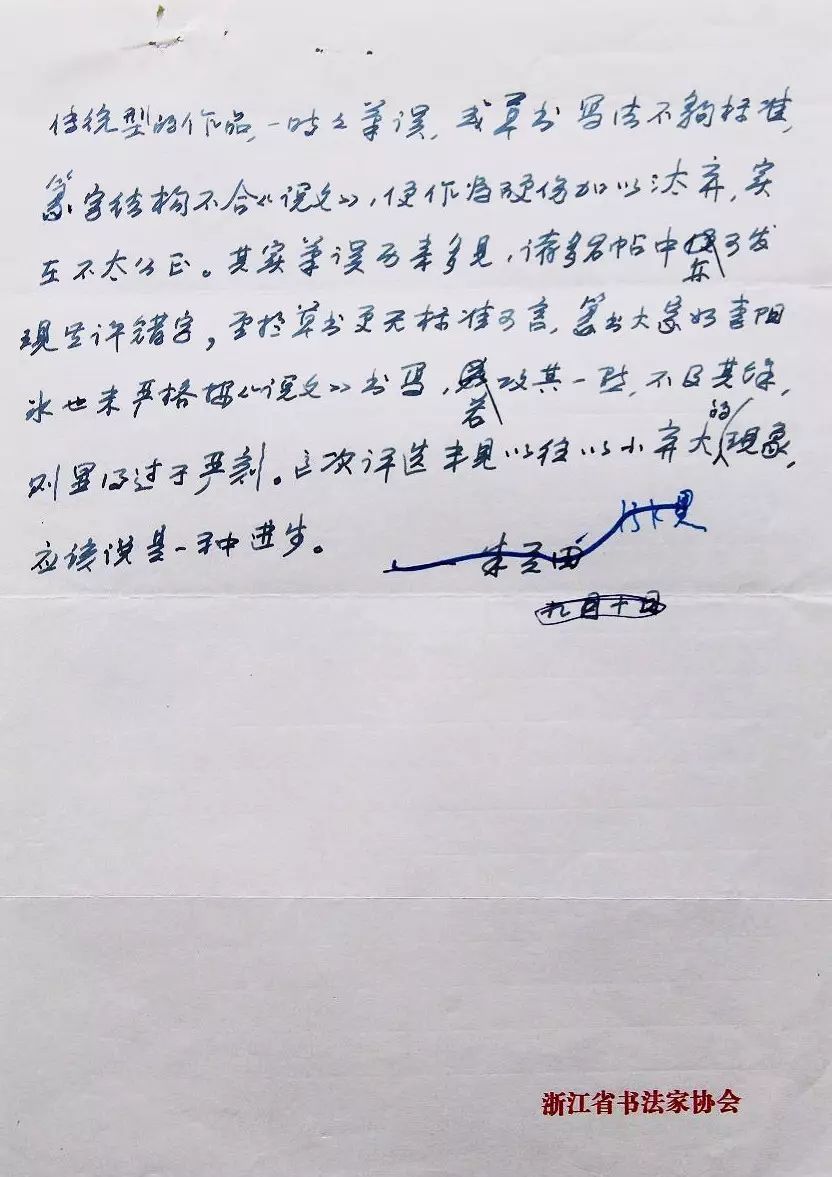 传统型的作品,一时之笔误,或草书写法不夠标准,
篆字结构不合《说文》,便作为硬伤加以汰弃,实
在不太公正。其实笔误历来多见,诸多名帖中亦可发
现些许错字,至於草书更无标准可言,篆书大家如李阳
冰也未严格按《说文》书写,若攻其一点,不及其余,
则显得过于严刻。这次评选未见以往以小弃大的现象,
应该说是一种进步。
朱关田
九月十日
浙江省书法家协会